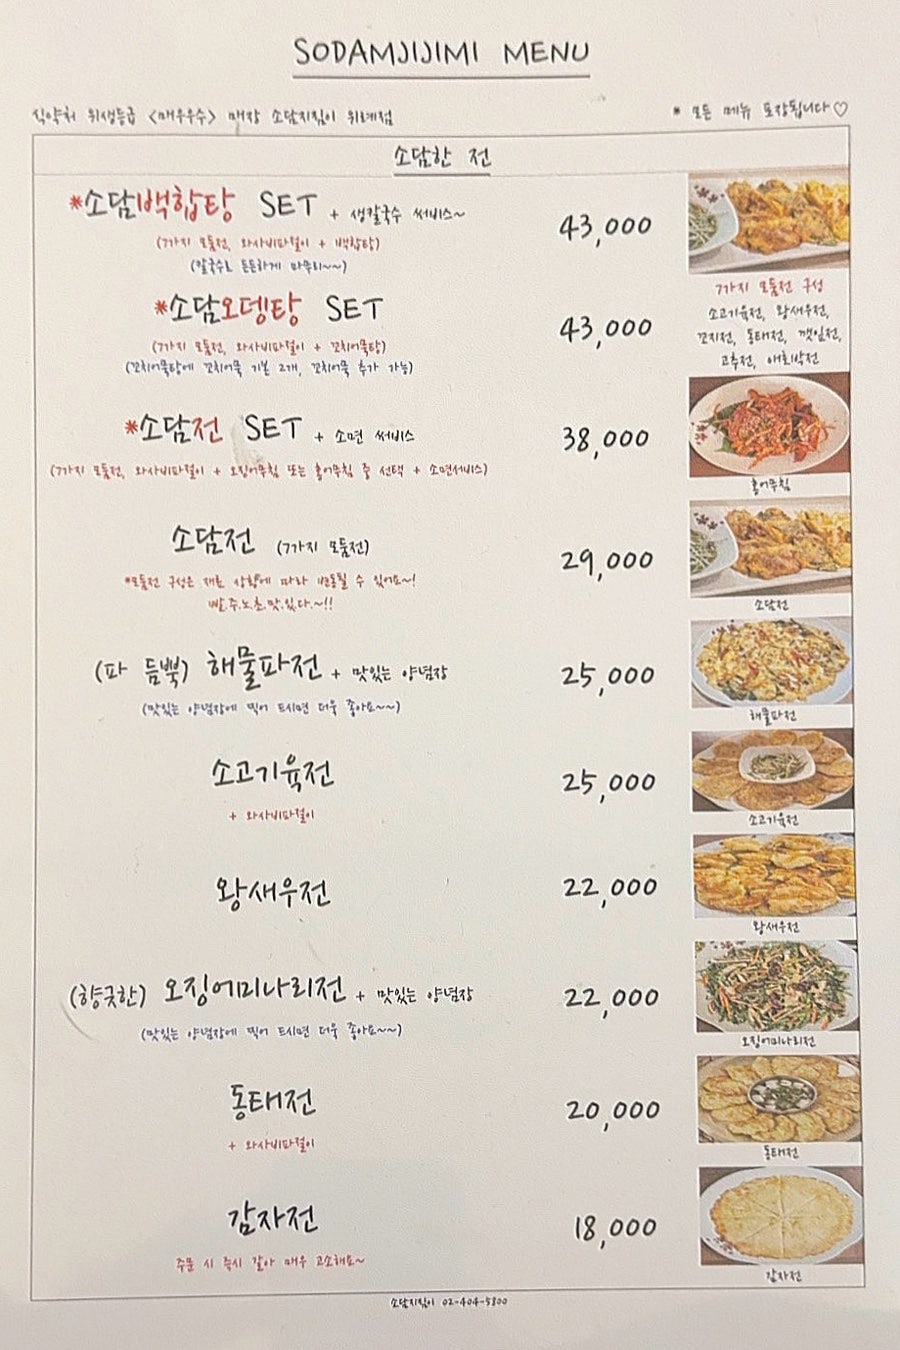 SODAMJIJIMI MENU
식약처 위생등급 <매우우수> 매장 소담지짐이 위례점
* 모든 메뉴 포장됩니다♡
소담한 전
*소담백합탕 SET + 생칼국수 써비스~
43,000
(7가지 모둠전, 와사비파절이 + 백합탕)
(칼국수로 든든하게 마무리~~)
7가지 모둠전 구성
소고기육전, 왕새우전,
꼬지전, 동태전, 깻잎전,
고추전, 애호박전
*소담오뎅탕 SET
43,000
(7가지 모둠전, 와사비파절이 + 꼬치어묵탕)
(꼬치어묵탕에 꼬치어묵 기본 2개, 꼬치어묵 추가 가능)
*소담전 SET + 소면 써비스
38,000
(7가지 모둠전, 와사비파절이 + 오징어무침 또는 홍어무침 중 선택 + 소면서비스)
홍어무침
소담전 (7가지 모둠전)
29,000
*모둠전 구성은 재료 상황에 따라 변동될 수 있어요~!
빨.주.노.초.맛.있.다.~!!
소담전
(파 듬뿍) 해물파전 + 맛있는 양념장
25,000
(맛있는 양념장에 찍어 드시면 더욱 좋아요~~)
해물파전
소고기육전
25,000
+ 와사비파절이
소고기육전
왕새우전
22,000
왕새우전
(향긋한) 오징어미나리전 + 맛있는 양념장
22,000
(맛있는 양념장에 찍어 드시면 더욱 좋아요~~)
오징어미나리전
동태전
20,000
+ 와사비파절이
동태전
감자전
18,000
주문 시 즉시 갈아 매우 고소해요~
감자전
소담지짐이 02-404-5300